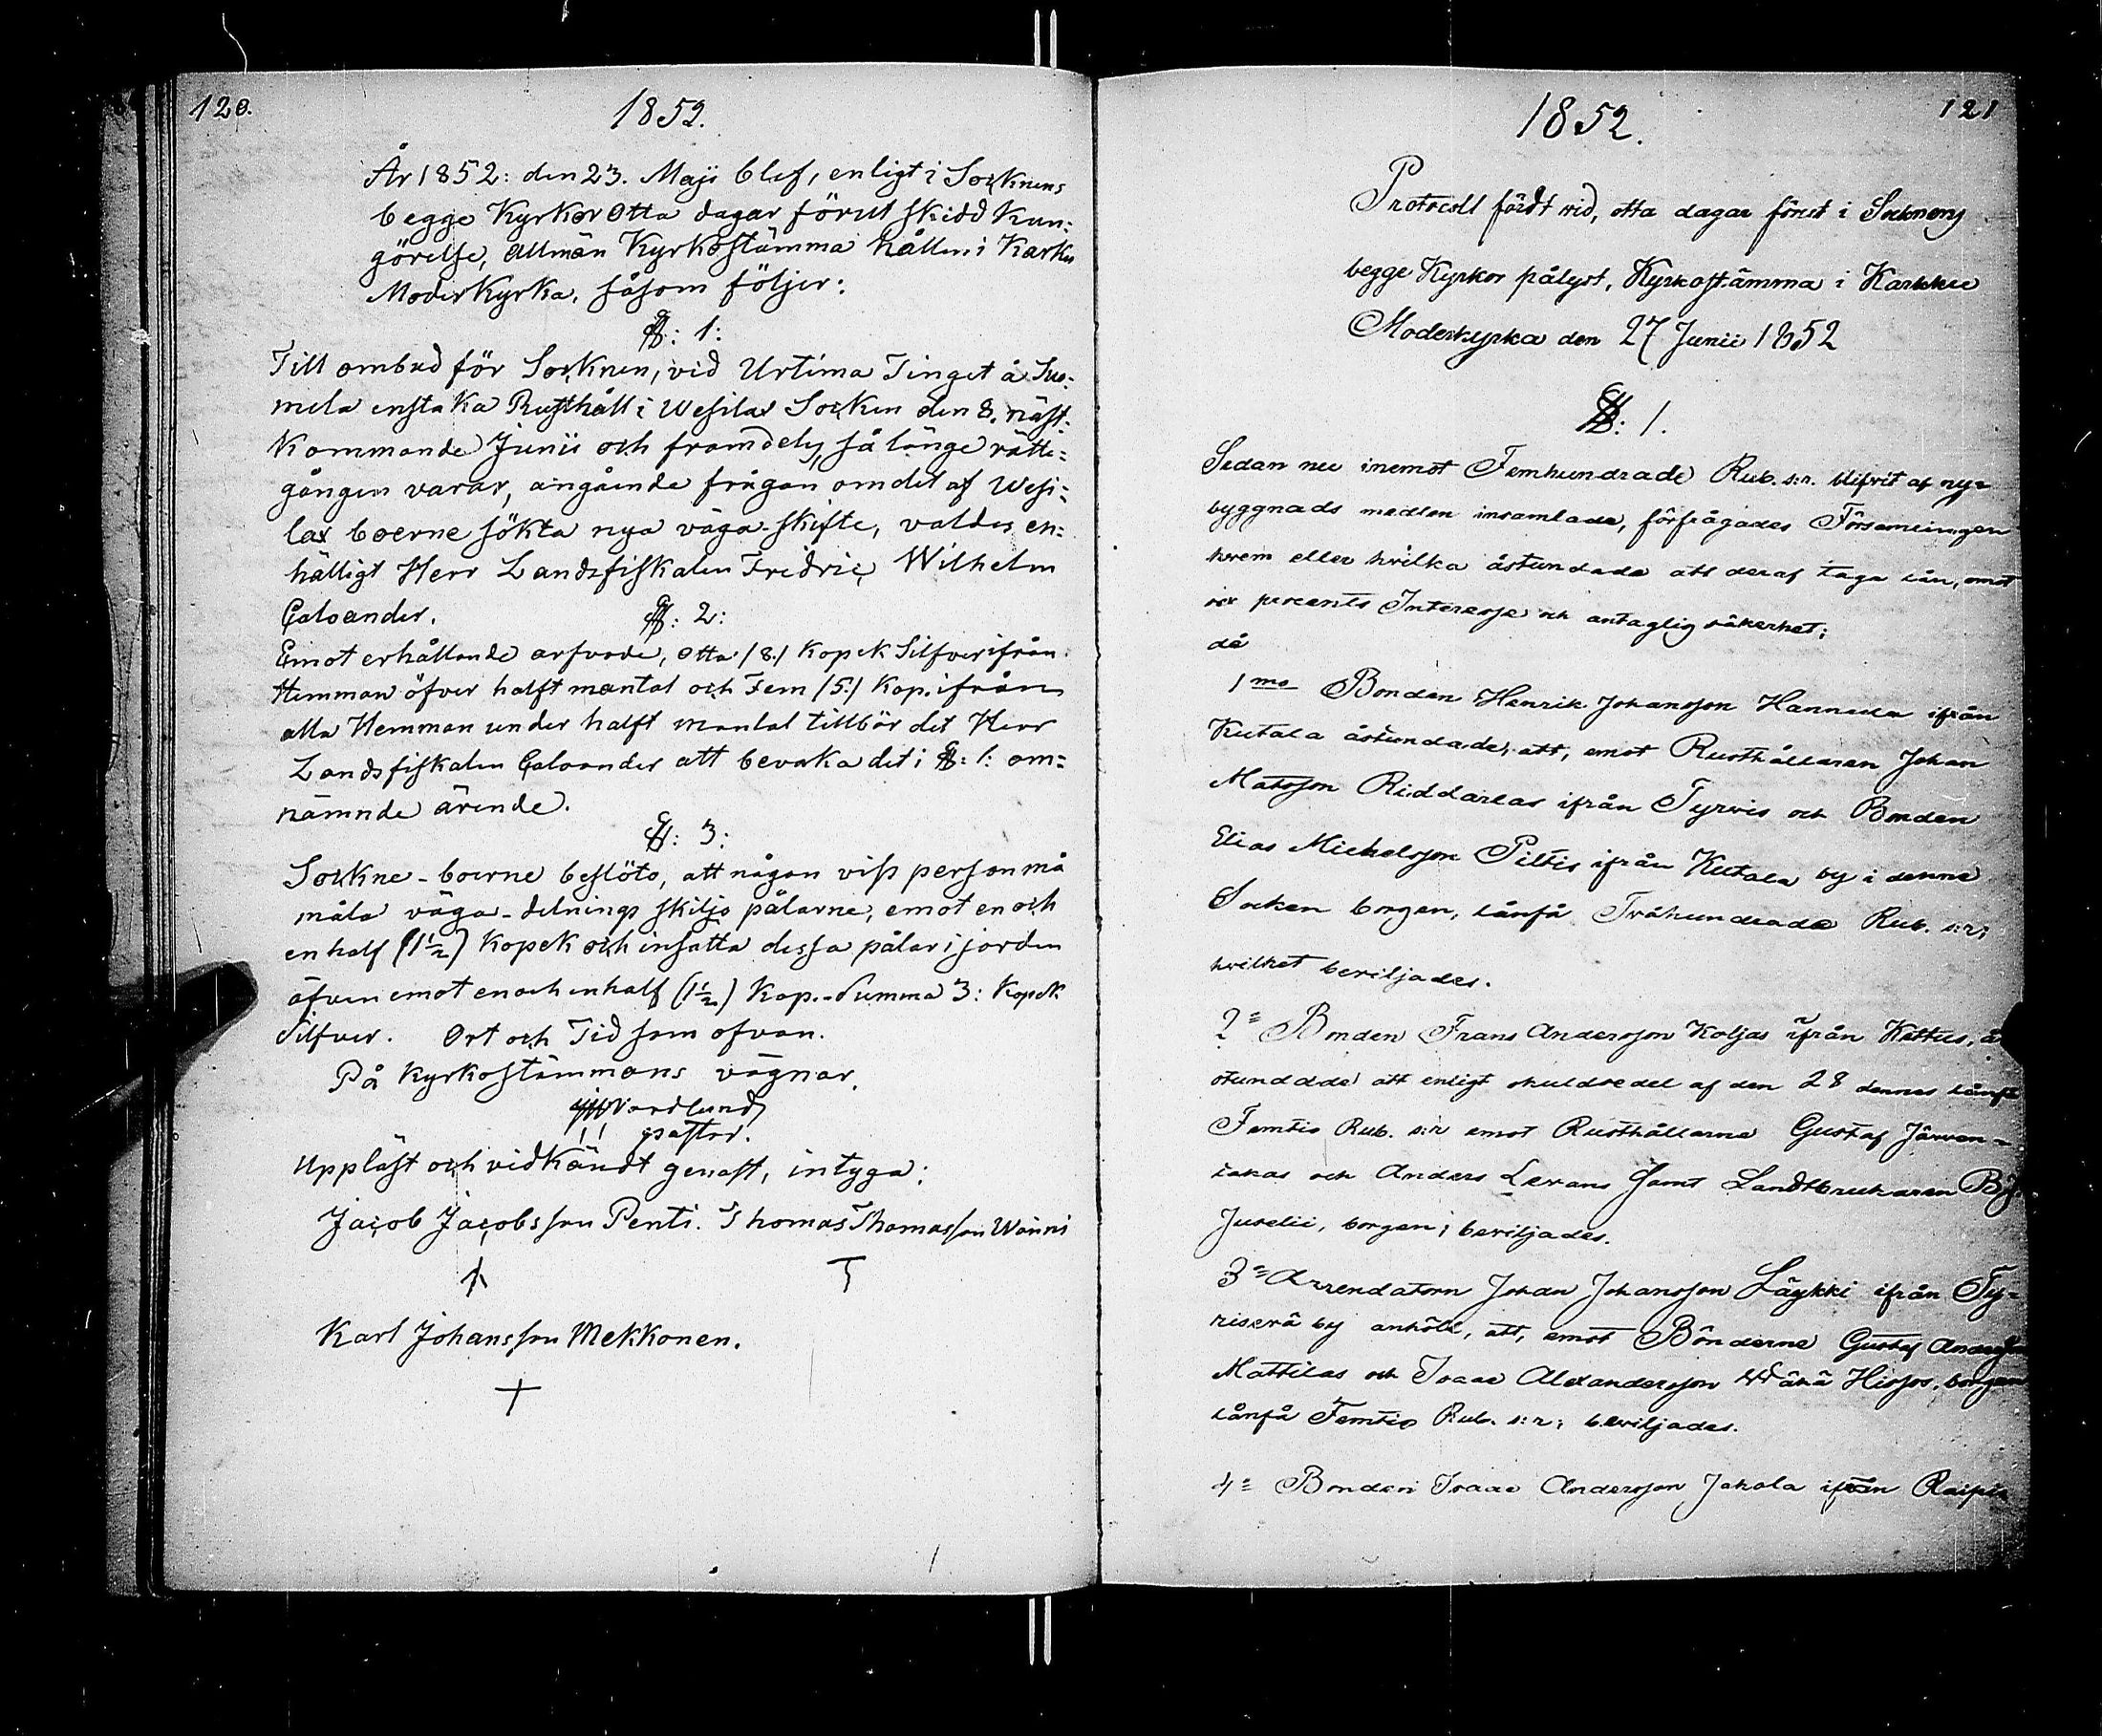 120.
1852.
År 1852: den 23. Maji blef, enligt i Socknens
begge Kyrkor otta dagar förut skedd Kun=
görelse, allmän Kyrkostämma hållen i Karku
Moderkyrka, såsom följer:
§: 1:
Till ombud för Socknen, vid Urtima Tinget å Suo=
mela enstaka Rusthåll i Wesilax Socken den 8. näst=
kommande Junii och framdeles, så länge rätte=
gången varar, angående frågan om det af Wesi=
lax boerne sökta nya väga-skifte, valdes en=
hälligt Herr Landsfiskalen Fredric Wilhelm
Caloander.
§: 2:
Emot erhållande arfvode, otta /8./ Kopek Silfver ifrån
Hemman öfver halft mantal och Fem /5./ Kop. ifrån
alla Hemman under halft mantal tillbör det Herr
Landsfiskalen Caloander att bevaka det i §: 1: om=
nämnde ärende.
§: 3:
Sockne-boerne beslöto, att någon viss person må
måla väga-delnings skiljo pålarne, emot en och
en half (1½) Kopek och insatta dessa pålar i jorden
äfven emot en och en half (1½) Kop.-Summa 3: Kopek
Silfver. Ort och Tid som ofvan.
På Kyrkostämmans vägnar,
Nordlund
pastor.
Uppläst och vidkändt genast, intyga:
Jacob Jacobsson Penti. Thomas Thomasson Wänni
Karl Johansson Mekkonen.
121
1852.
Protocoll fördt vid, otta dagar förut i Socknens
begge Kyrkor pålyst, Kyrkostämma i Karkku
Moderkyrka den 27 Junii 1852
§: 1.
Sedan nu inemot Femhundrade Rub. s:r. blifvit af ny=
byggnads medlen insamlade, förfrågades Församlingen
hvem eller hvilka åstundade att deraf taga lån, emot
sex procents Interesse och antaglig säkerhet;
då
1mo Bonden Henrik Johansson Hannula ifrån
Kutala åstundade, att, emot Rusthållaren Johan
Matsson Riddarlas ifrån Tyrvis och Bonden
Elias Michelsson Piltis ifrån Kutala by i denna
Socken borgen, lånfå Tvåhundrade Rub. s:r;
hvilket beviljades.
2= Bonden Frans Andersson Koljas ifrån Kettus, å
stundade att enligt skuldsedel af den 28 dennes lånfå
Femtio Rub. s:r emot Rusthållarne Gustaf Järven=
takas och Anders Levans samt Landtbrukaren
Juselii, borgen; beviljades.
3= Arrendatorn Johan Johansson Läykki ifrån Ty=
riserä by anhöll, att, emot Bönderne Gustaf Anders
Mattilas och Isaac Alexandersson Wäkä Hiojos, borgen
lånfå Femtio Rub. s:r; beviljades.
4= Bonden Isaac Andersson Jakala ifrån Raipio